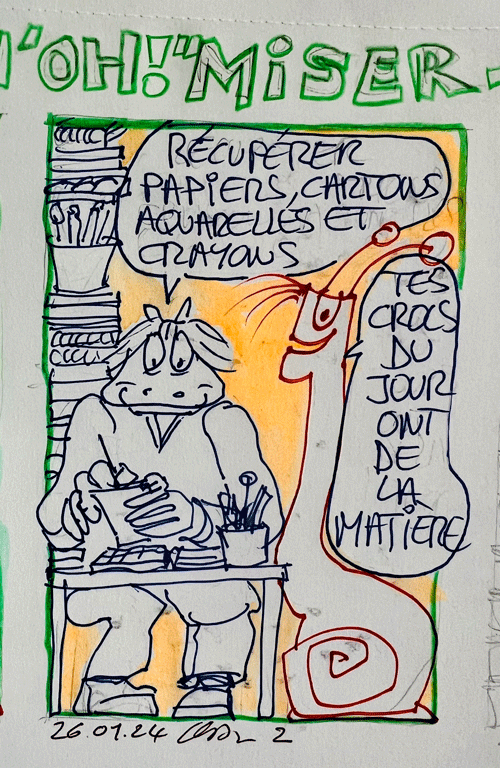 'OH!"MiSER-
RÉCUPÉRER
PAPiERS, CARTONS
AQUARELLES ET
CRAYONS
TES
CROCS
DU
JOUR
ONT
DE
LA
MATiÈRE
26.01.24 2